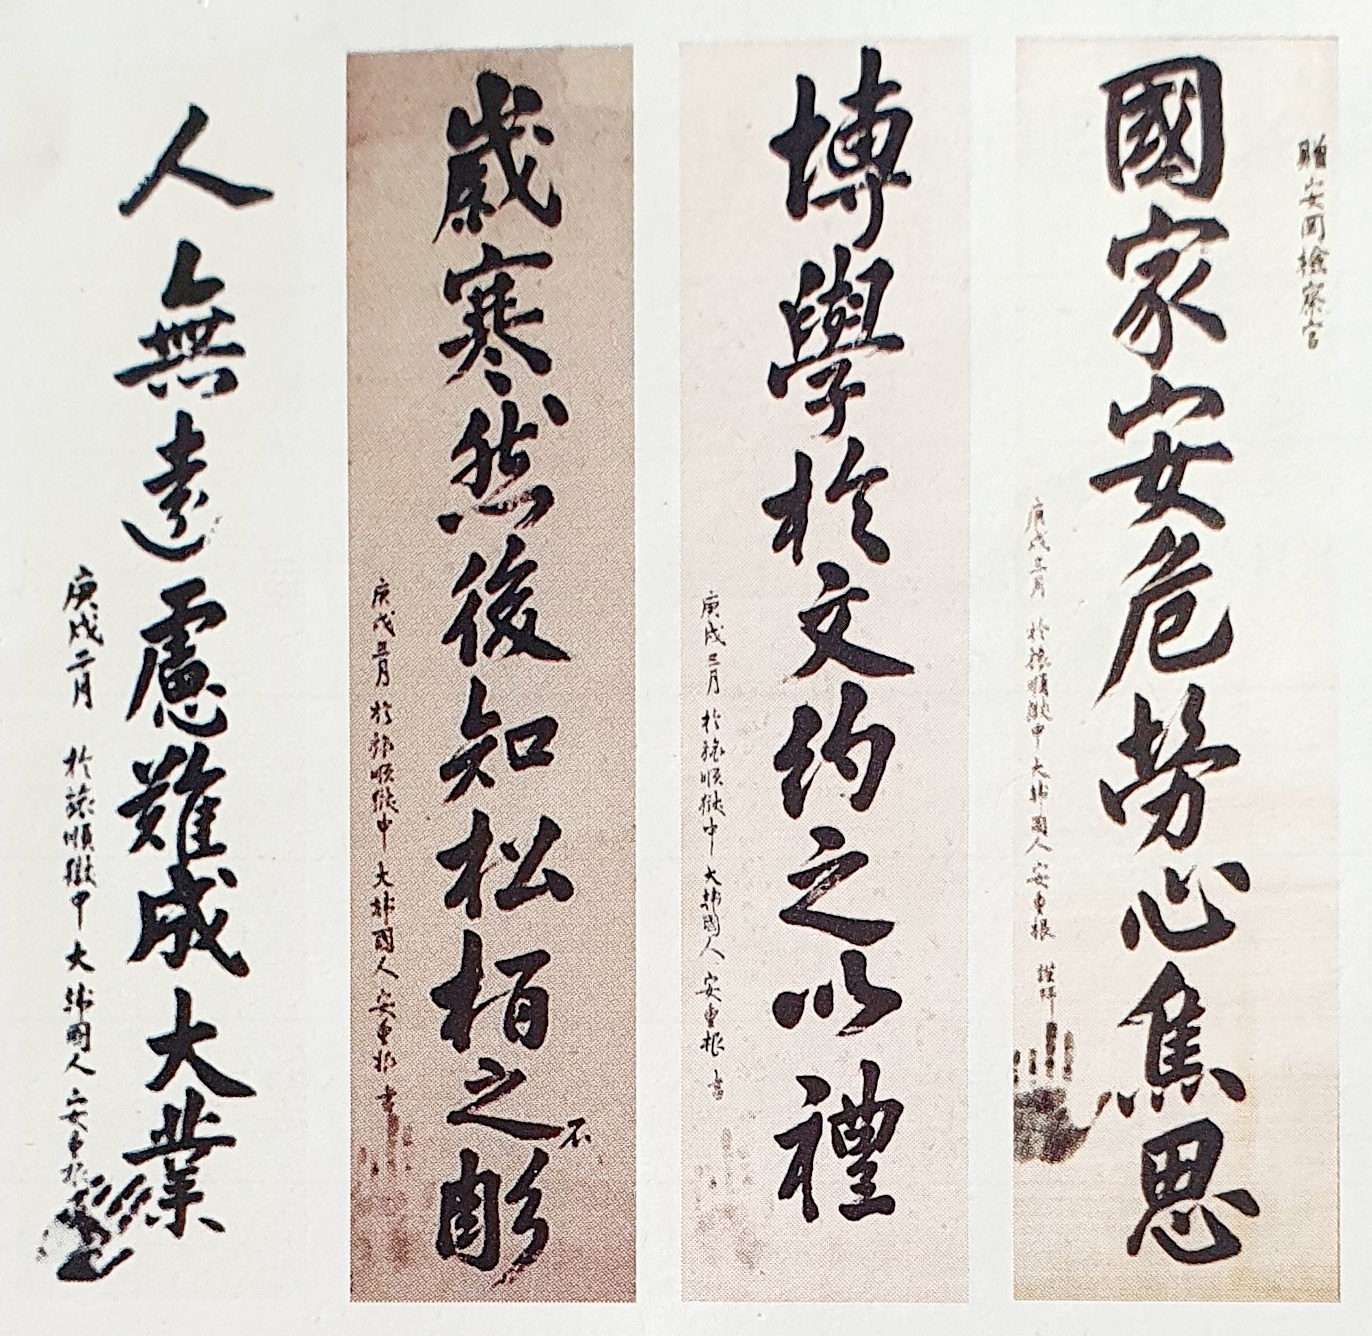 贈安岡檢察官
國家安危勞心焦思
庚戌三月 於旅順獄中 大韓國人 安重根 謹拜
博學於文約之以禮
庚戌三月 於旅順獄中 大韓國人 安重根 書
歲寒然後知松栢之不彫
庚戌三月 於旅順獄中 大韓國人 安重根 書
人無遠慮難成大業
庚戌二月 於旅順獄中 大韓國人 安重根